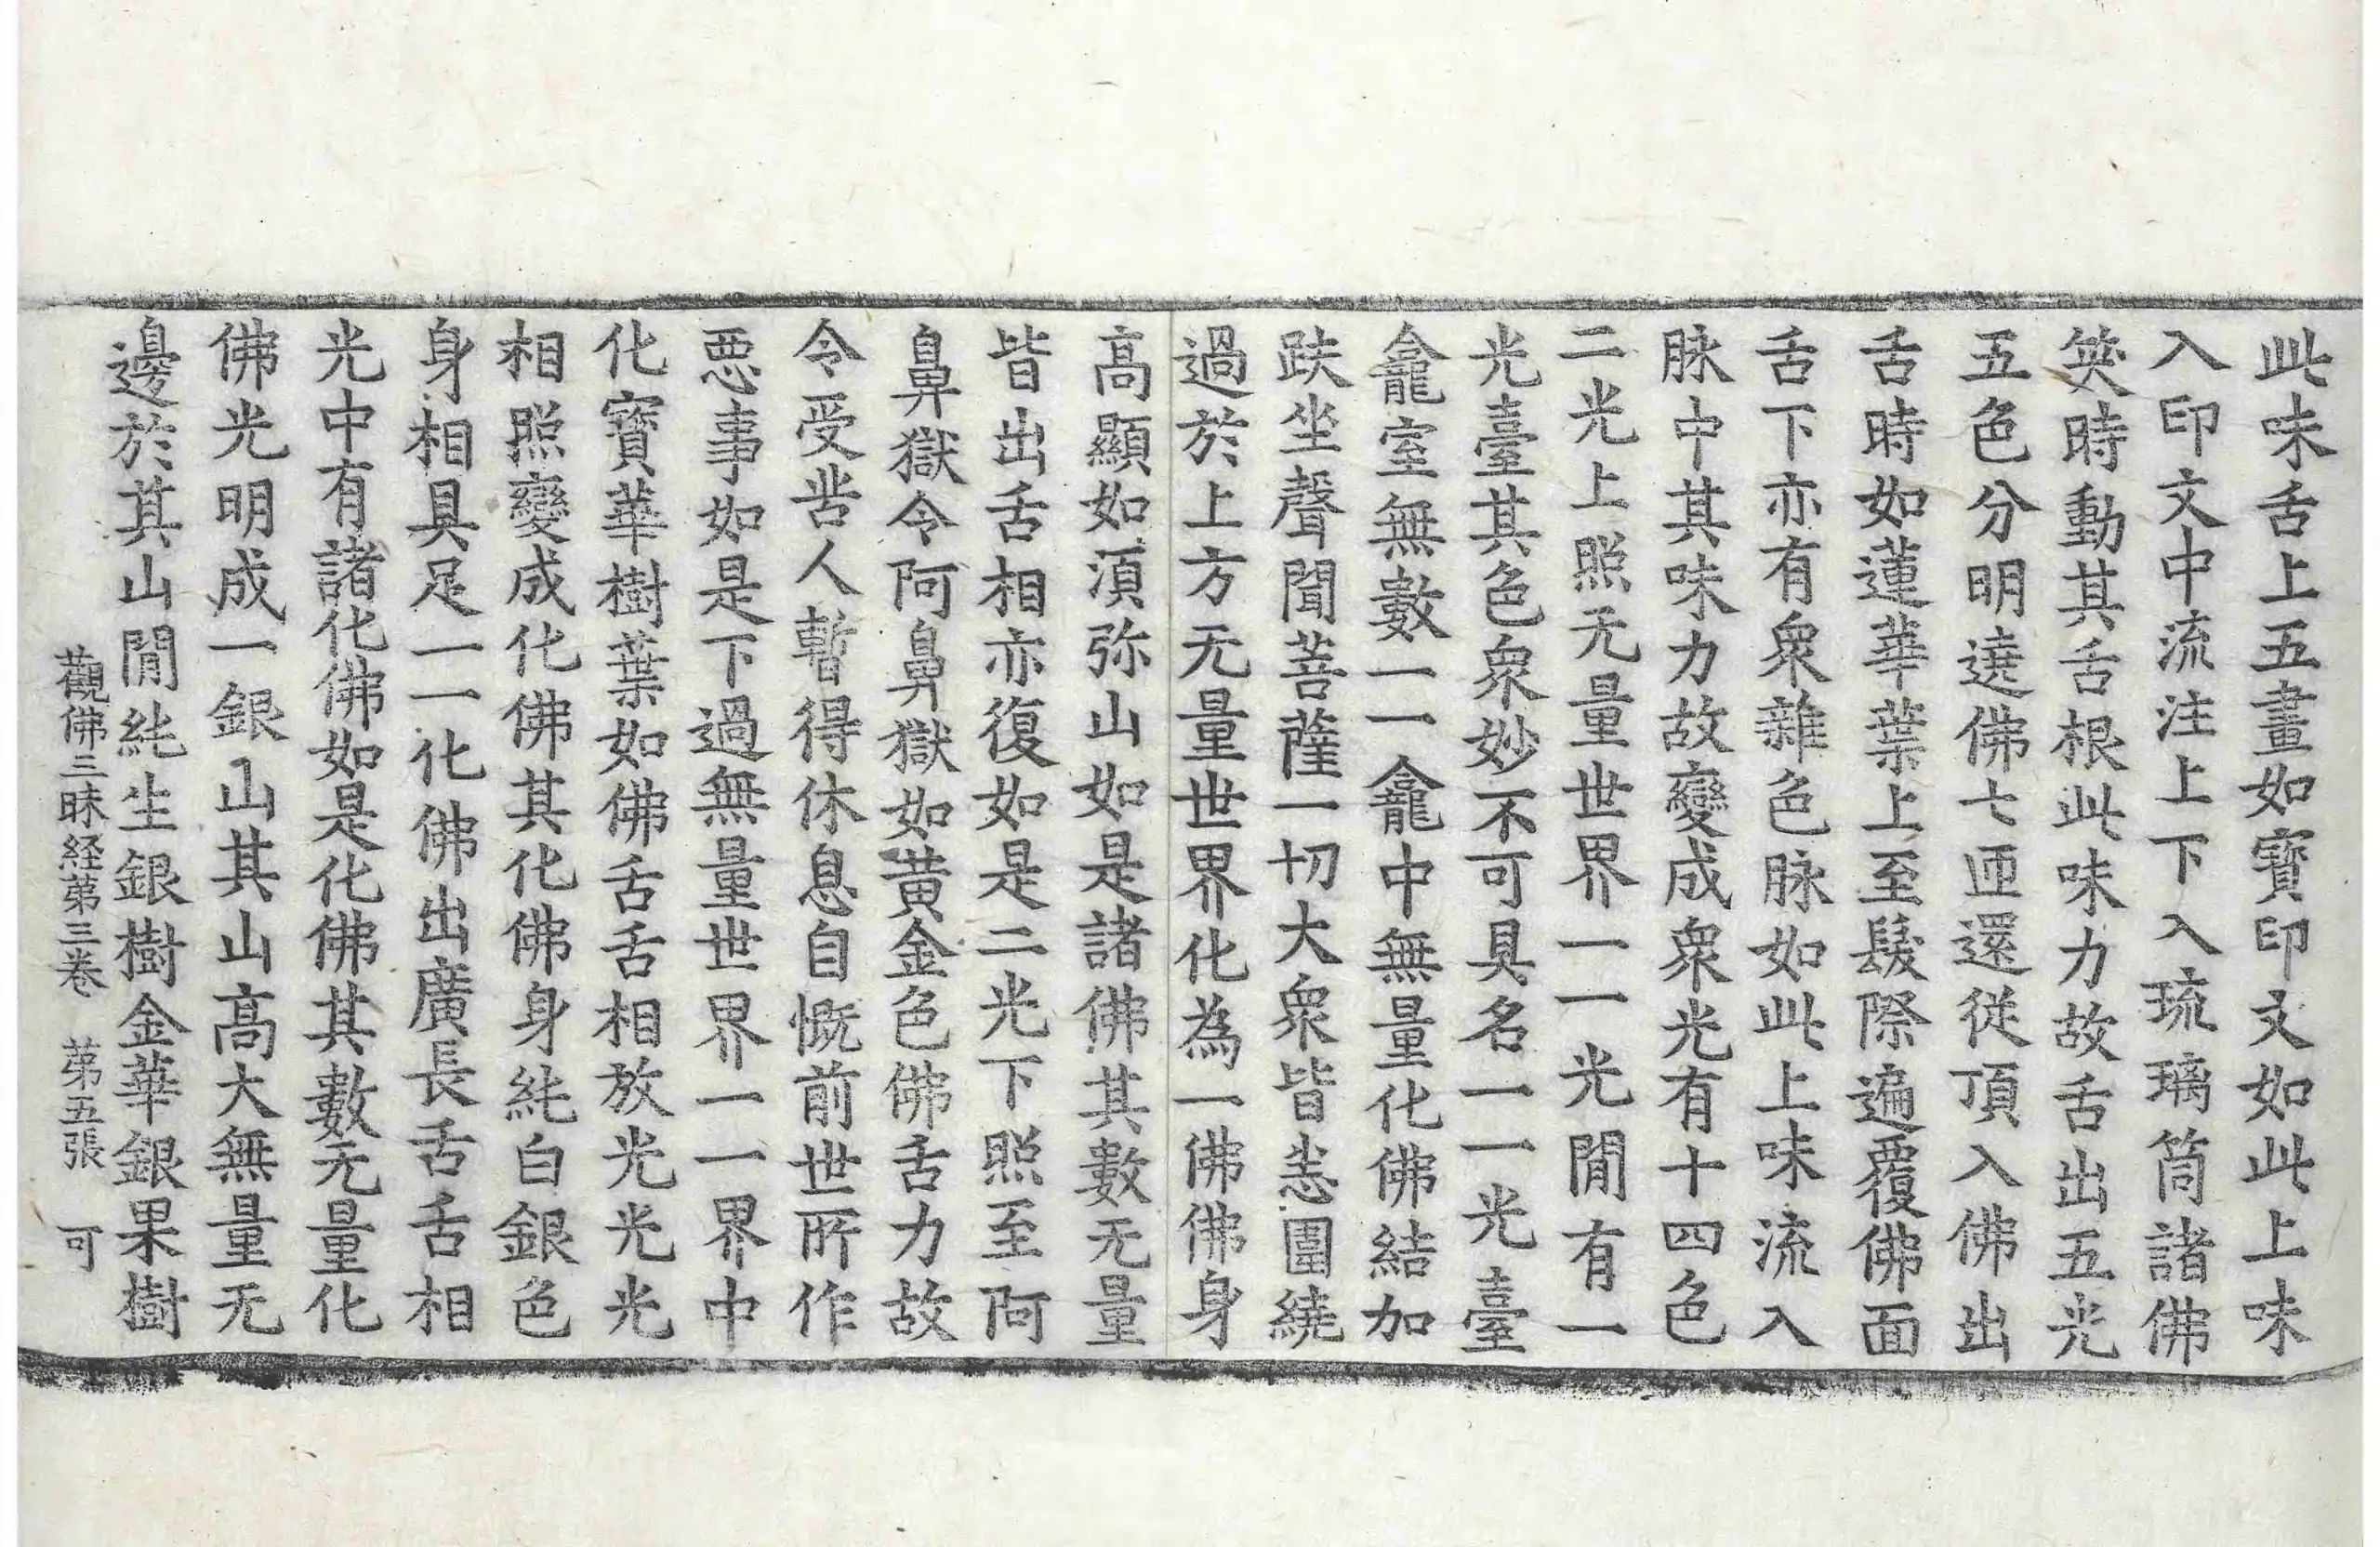 此味舌上五畫如寶印文如此上味
入印文中流注上下入琉璃筒諸佛
笑時動其舌根此味力故舌出五光
五色分明遶佛七迊還從頂入佛出
舌時如蓮華葉上至髮際遍覆佛面
舌下亦有衆雜色脉如此上味流入
脉中其味力故變成衆光有十四色
二光上照无量世界一一光閒有一
光臺其色衆妙不可具名一一光臺
龕室無數一一龕中無量化佛結加
趺坐聲聞菩薩一切大衆皆悉圍繞
過於上方无量世界化為一佛佛身
高顯如湏弥山如是諸佛其數无量
皆出舌相亦復如是二光下照至阿
鼻獄令阿鼻獄如黃金色佛舌力故
令受苦人暫得休息自慨前世所作
惡事如是下過無量世界一一界中
化寶華樹葉如佛舌舌相放光光光
相照變成化佛其化佛身純白銀色
身相具足一一化佛出廣長舌舌相
光中有諸化佛如是化佛其數无量化
佛光明成一銀山其山高大無量无
邊於其山閒純生銀樹金華銀果樹
觀佛三昧経第三卷 第五張 可